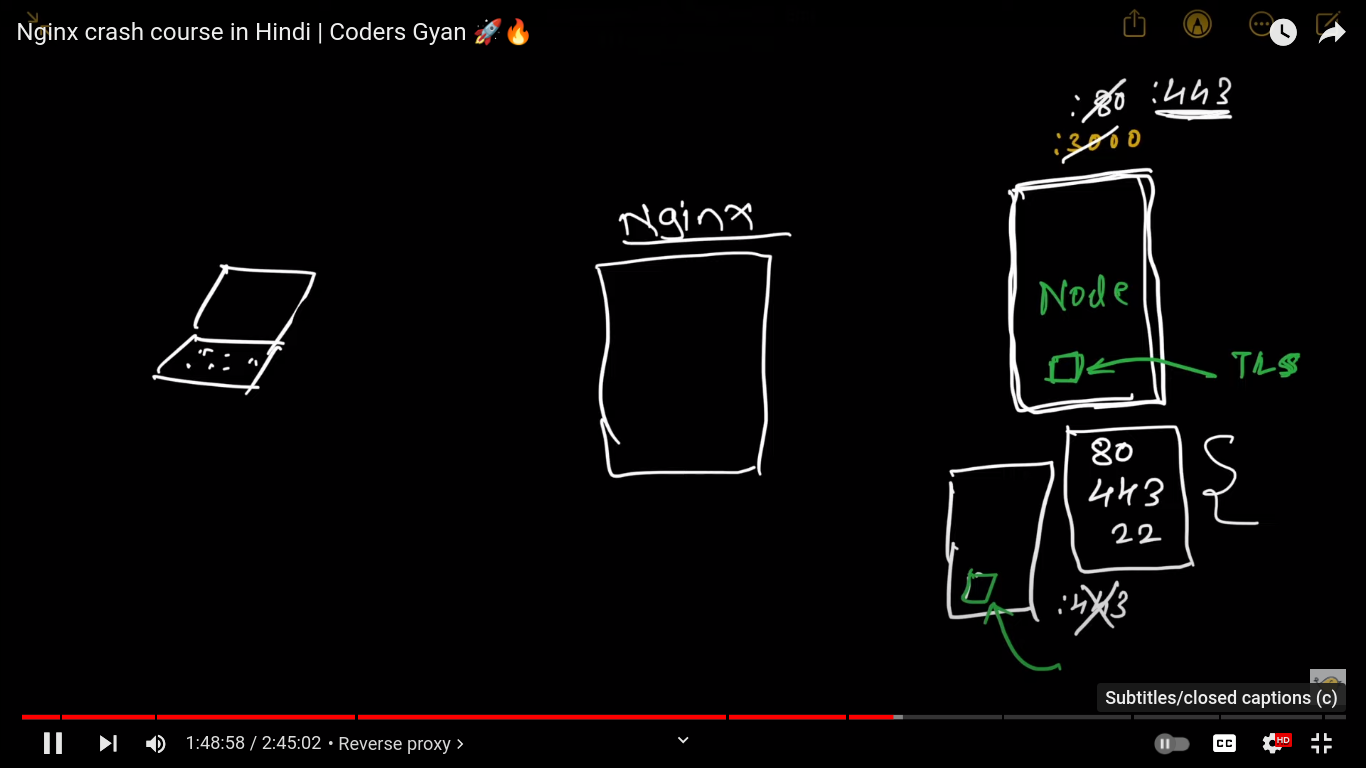 Nginx crash course in Hindi | Coders Gyan 🚀🔥
:80 :443
:3000
Nginx
Node
TLS
80
443
22
:443
Subtitles/closed captions (c)
1:48:58 / 2:45:02 • Reverse proxy >
CC
HD